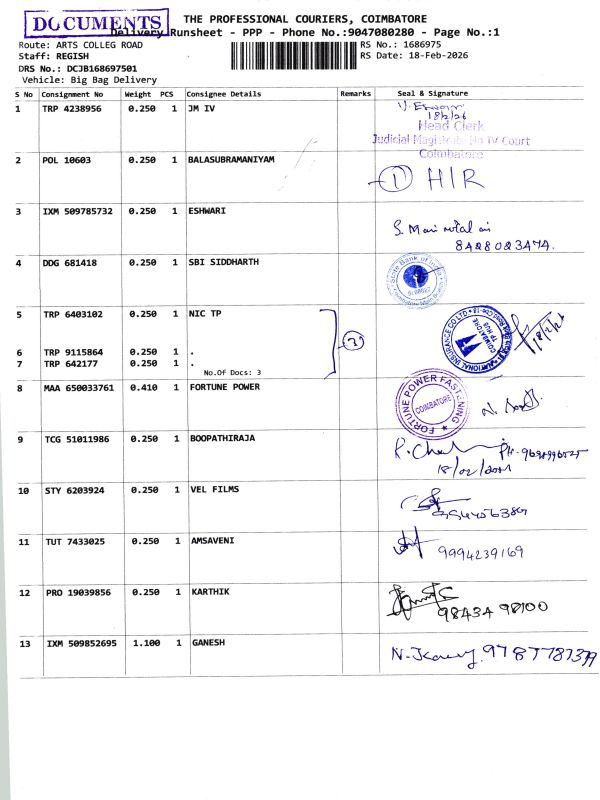 DOCUMENTS
THE PROFESSIONAL COURIERS, COIMBATORE
Delivery Runsheet - PPP - Phone No.:9047080280 - Page No.:1
Route: ARTS COLLEG ROAD RS No.: 1686975
Staff: REGISH RS Date: 18-Feb-2026
DRS No.: DCJB168697501
Vehicle: Big Bag Delivery
S No Consignment No Weight PCS Consignee Details Remarks Seal & Signature
1 TRP 4238956 0.250 1 JM IV
18/2/26
Head Clerk
Judicial Magistrate No IV Court
Coimbatore
2 POL 10603 0.250 1 BALASUBRAMANIYAM
1 H/R
3 IXM 509785732 0.250 1 ESHWARI
S. Mani
8428023474.
4 DDG 681418 0.250 1 SBI SIDDHARTH
State Bank of India
5 TRP 6403102 0.250 1 NIC TP
6 TRP 9115864 0.250 1 .
7 TRP 642177 0.250 1 .
No.Of Docs: 3
3
NATIONAL INSURANCE CO LTD
COIMBATORE
TP HUB
18/2/26
8 MAA 650033761 0.410 1 FORTUNE POWER
FORTUNE POWER FASTENING
COIMBATORE
9 TCG 51011986 0.250 1 BOOPATHIRAJA
18/02/2026
10 STY 6203924 0.250 1 VEL FILMS
11 TUT 7433025 0.250 1 AMSAVENI
9994239169
12 PRO 19039856 0.250 1 KARTHIK
98434 98100
13 IXM 509852695 1.100 1 GANESH